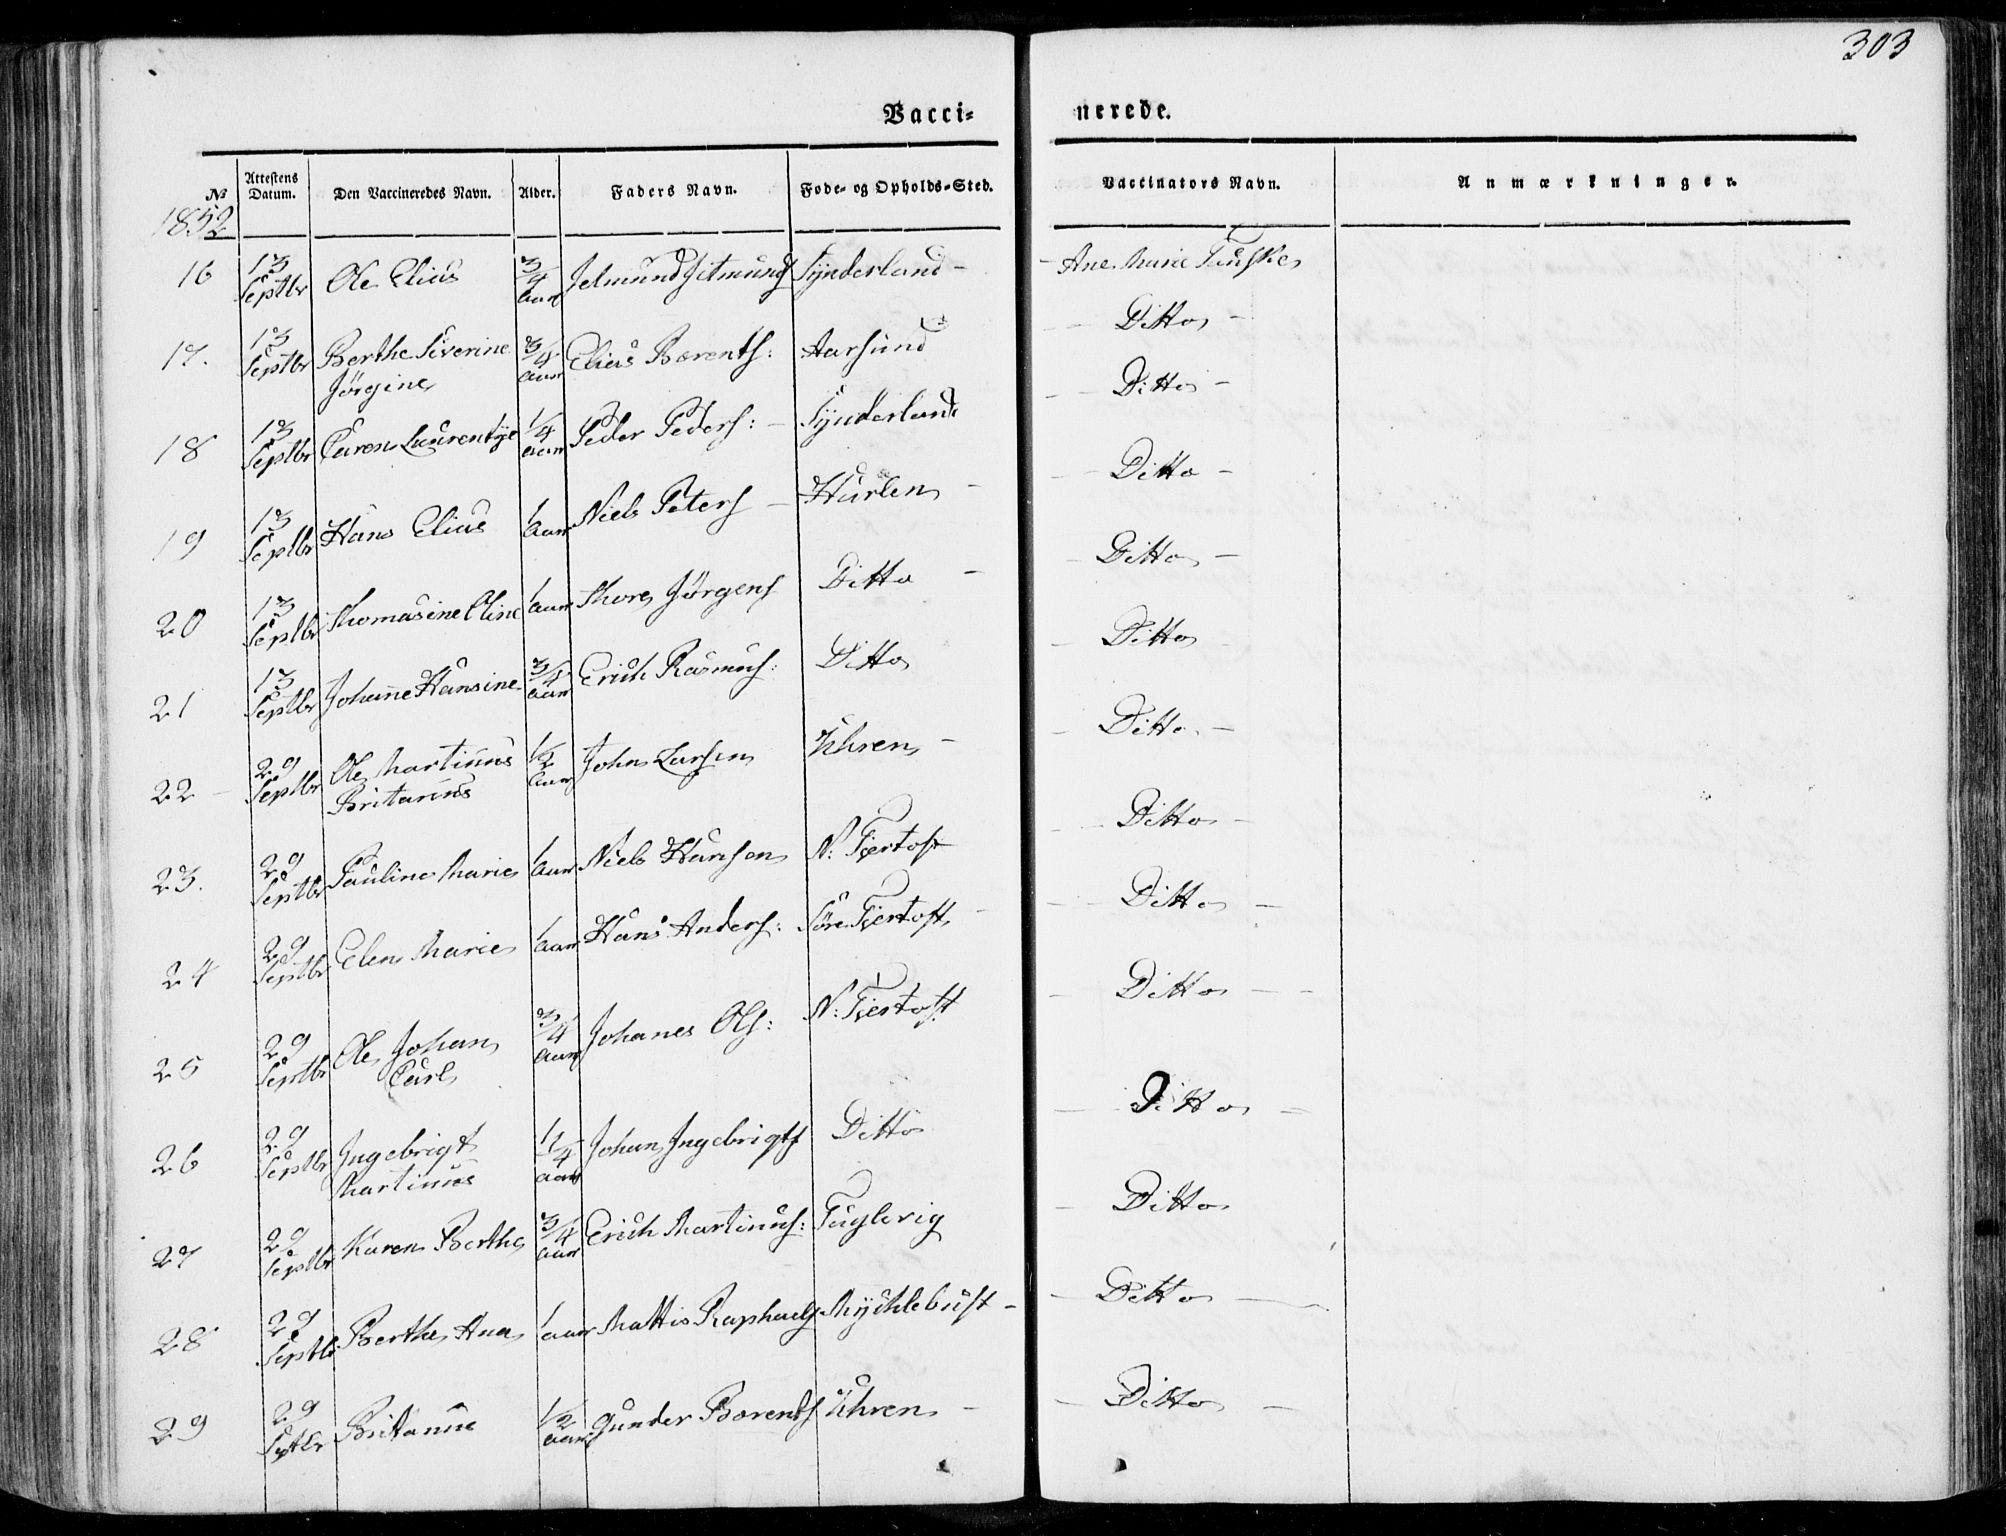 303
Vacci- nerede.
No Attestens Datum. Den Vaccineredes Navn. Alder. Faders Navn. Føde- og Opholds-Sted. Vaccinators Navn. Anmærkninger.
1852
16 13 Septbr Ole Elias 3/4 aar Jetmund Jetmunds Synderland - Ane Marie
17. 13 Septbr Berthe Severine 3/4 aar Elias Barents: Aarsund Ditto -
Jørgine
18 13 Septbr Caren Laurentze 1/4 aar Peder Peders: - Synderland Ditto -
19 13 Septbr Hans Elias 1 aar Niels Peters - Hurlen - Ditto -
20 13 Septbr Thomasine Oline 1 aar Thore Jørgens Ditto - Ditto -
21 13 Septbr Johanne Hansine 3/4 aar Erich Rasmus: Ditto Ditto
22 - 29 Septbr Ole Martinus 1/2 aar John Larsen Uhren - Ditto -
Britanus
23. 29 Septbr Pauline Marie 1 aar Niels Hansen N: Fjertoft Ditto -
24 29 Septbr Elen Marie 1 aar Hans Anders: Søre Fjertoft - Ditto -
25 29 Septbr Ole Johan 3/4 aar Johanes Ols: N: Fjertoft Ditto - -
Carl
26 29 Septbr Ingebrigt aar Johan Ingebrigts Ditto Ditto -
Martinus
27 29 Septbr Karen Berthe 3/4 aar Erich Martinus: Fuglevig Ditto
28 29 Septbr Berthe Ana 1 aar Mattis Raphaels Mychlebust - Ditto -
29 29 Septbr Britanue 1/2 aar Gunder Barents Uhren - Ditto -